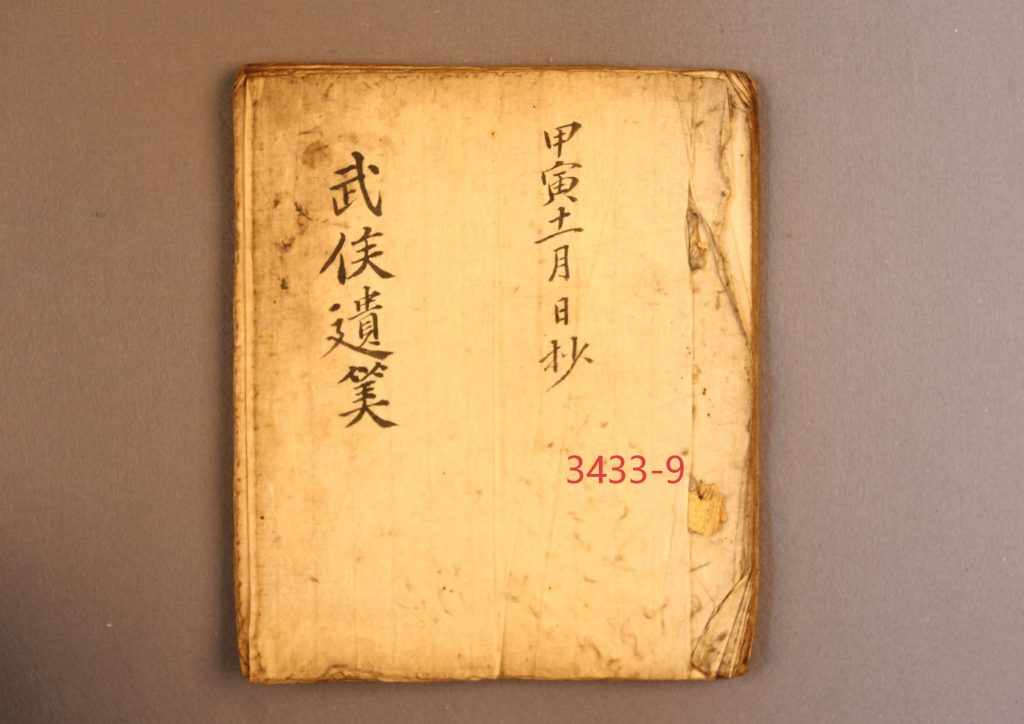 甲寅十一月 日抄
武侯遺筴
3433-9